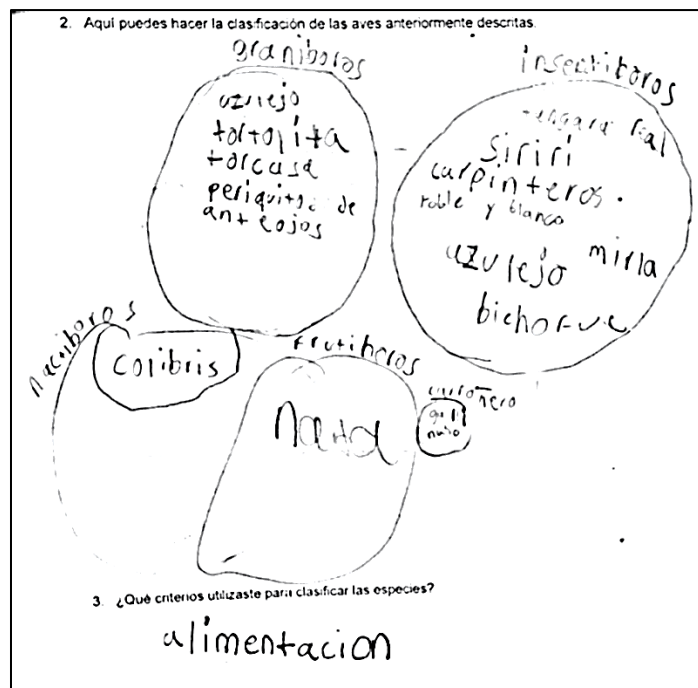 2. Aquí puedes hacer la clasificación de las aves anteriormente descritas.
graniboros
azulejo
tortolita
torcasa
periquitos de
anteojos
insectiboros
tangara real
siriri
carpinteros.
roble y blanco
azulejo mirla
bichofue
nactiboros
colibris
frutiberos
nada
carroñero
3. ¿Qué criterios utilizaste para clasificar las especies?
alimentacion